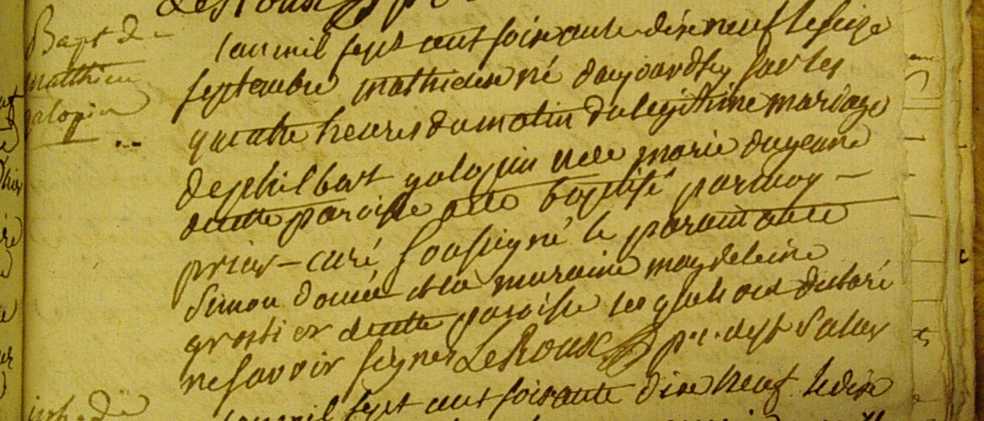 LeRoux p
Bapt de
matthieu
galopin
Lan mil sept cent soixante dix neuf le seize
septembre mathieu né daujourdhuy sur les
quatre heures du matin du legithime mariage
de philbert galopin et de marie dugenne
de cette paroisse a ete baptisé par moy
prieur-curé soussigné le parain a ete
Simon doué et la maraine magdeleine
grotier de cette paroisse lesquels ont declaré
ne savoir signer LeRoux pr. de St
Lan mil sept cent soixante dix neuf le dix